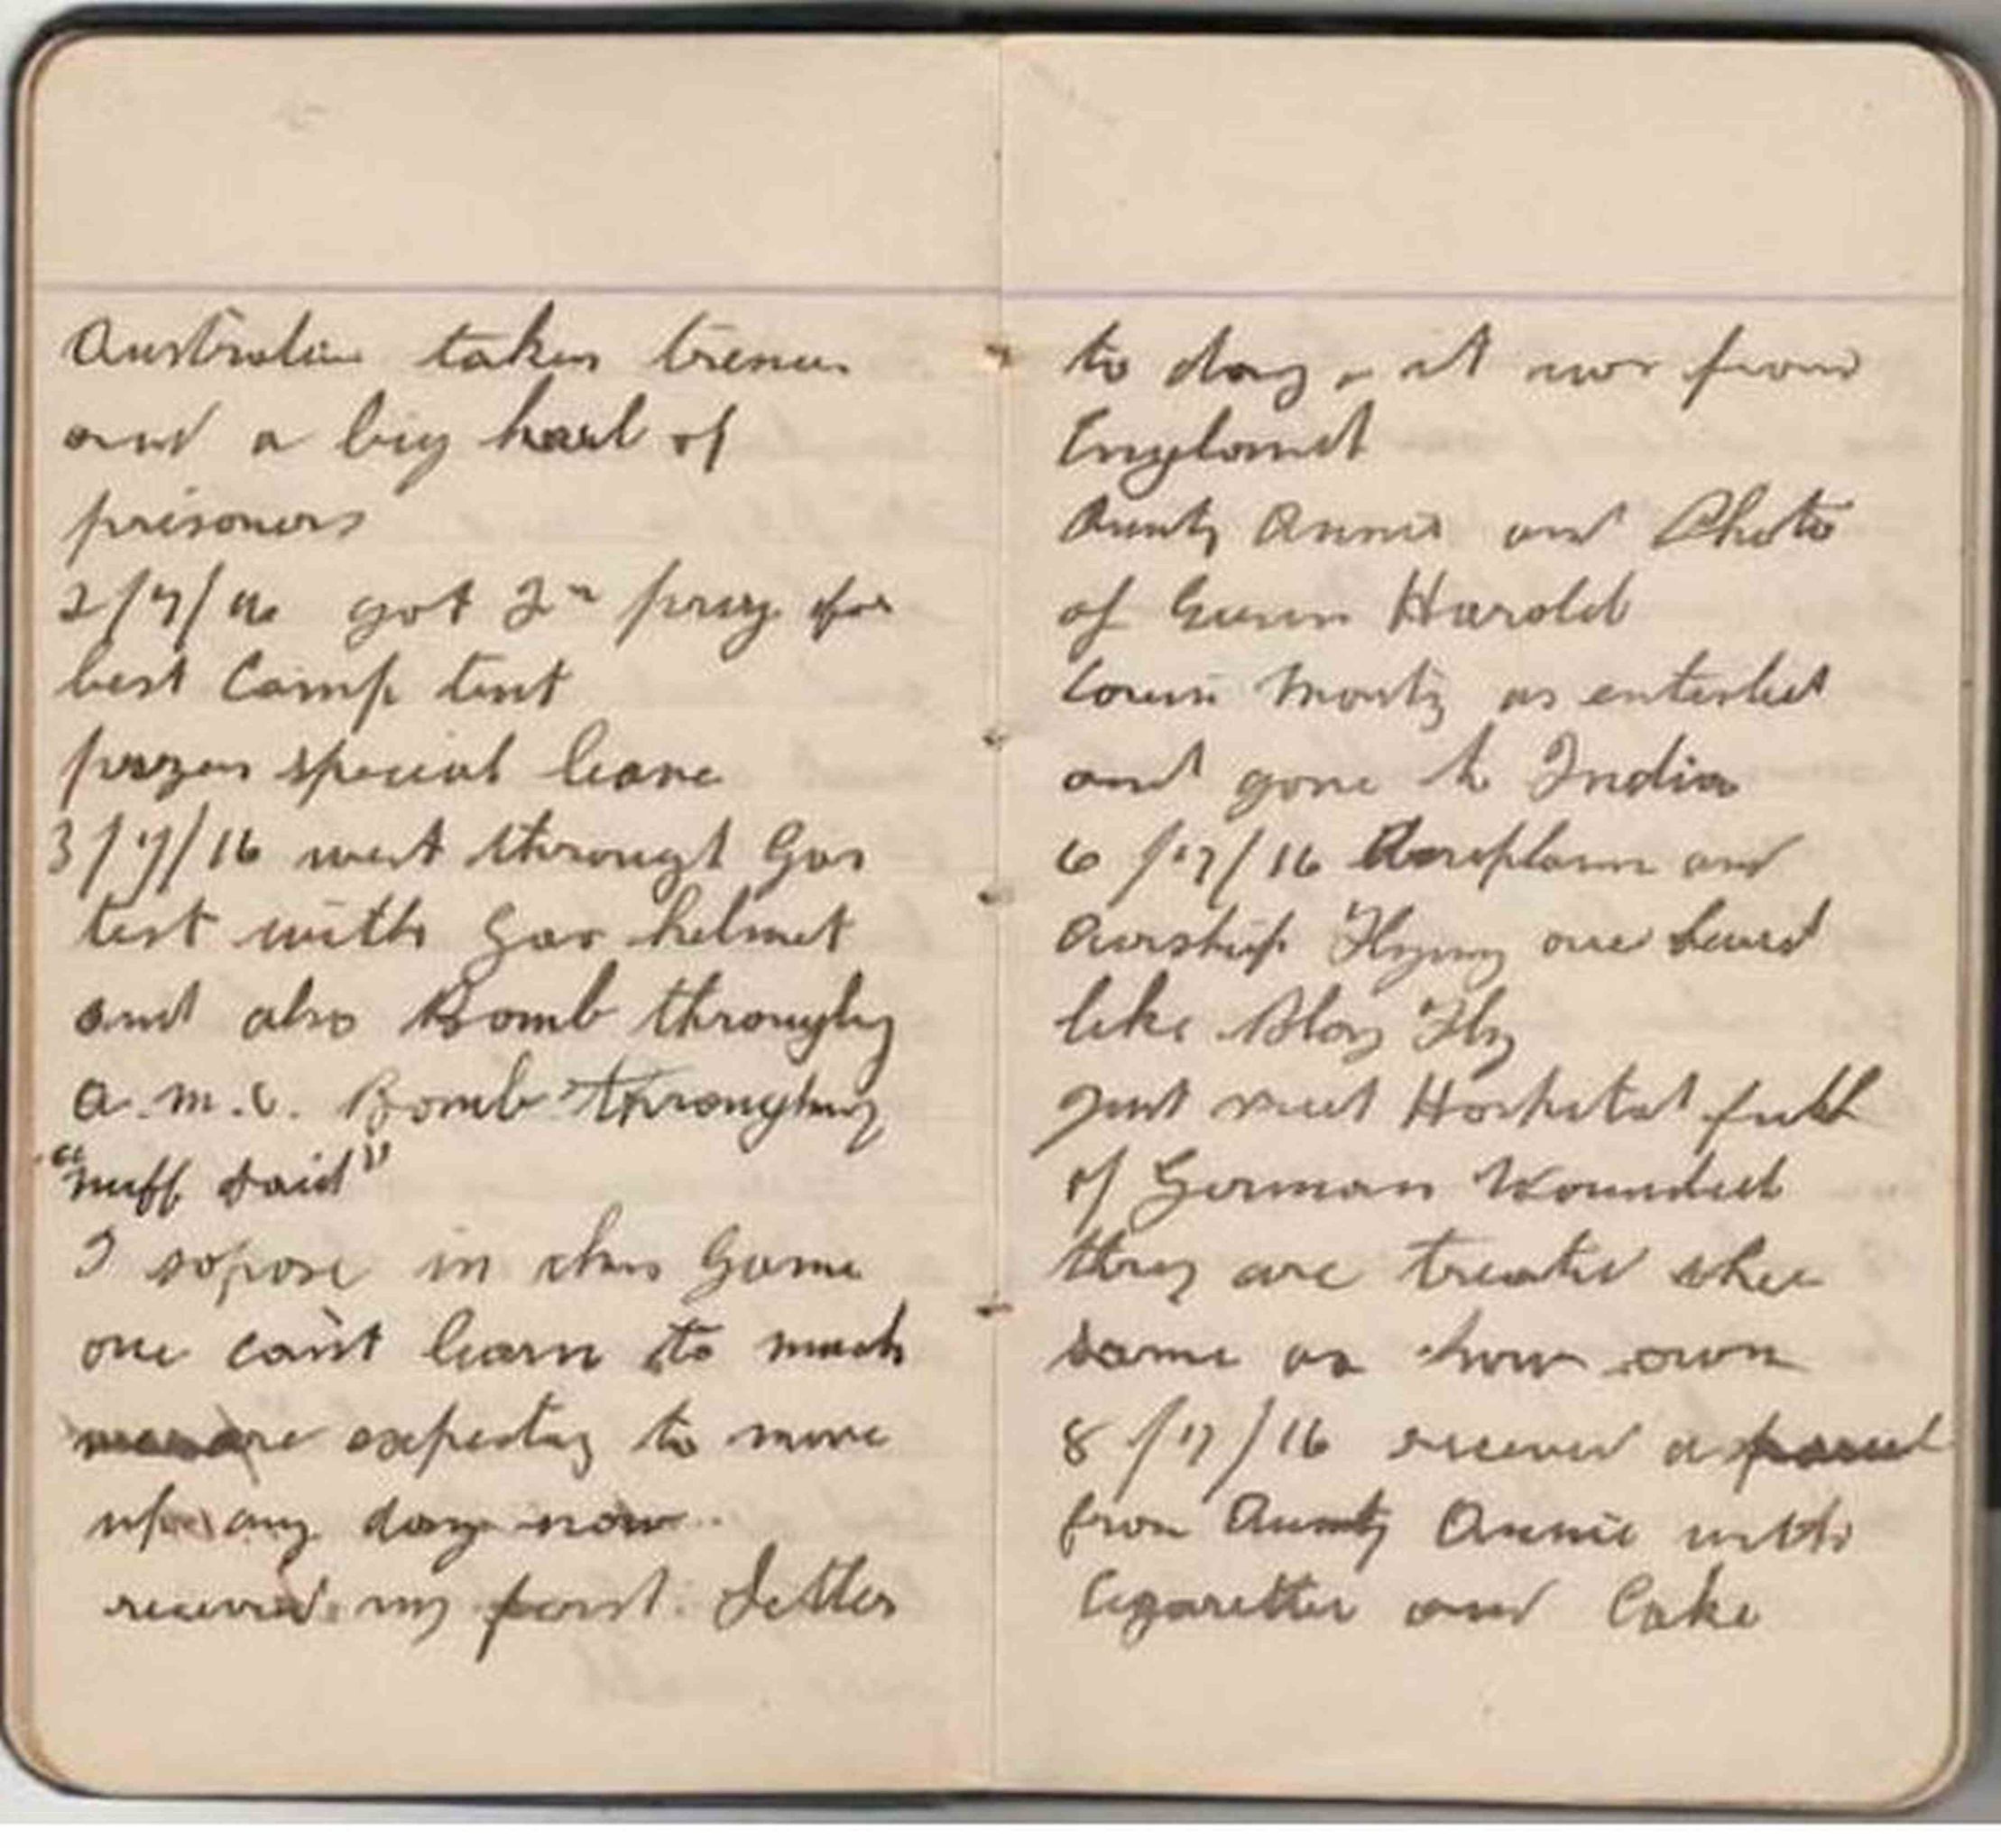 Australian taken trences
and a big haul of
prisoners
2/7/16 got 2n prize for
best Camp tent
prizes special leave
3/7/16 went through Gas
test with gas helmet
and also Bomb throughing
A.M.C. Bomb throughing
"nuff said"
I sopose in this Game
one can't learn to much
are expecting to move
up any day now
received my first Letter
to day it was from
England
Aunty Annie and Photo
of Harold
Cousin Monty as enterled
and gone to India
6/7/16 Aeroplane and
Airship Flying one heard
like Blow Fly
Just Hospital full
of German Wounded
they are treated the
same as how own
8/7/16 received a parcel
from Aunty Annie with
Cigarettes and Cake